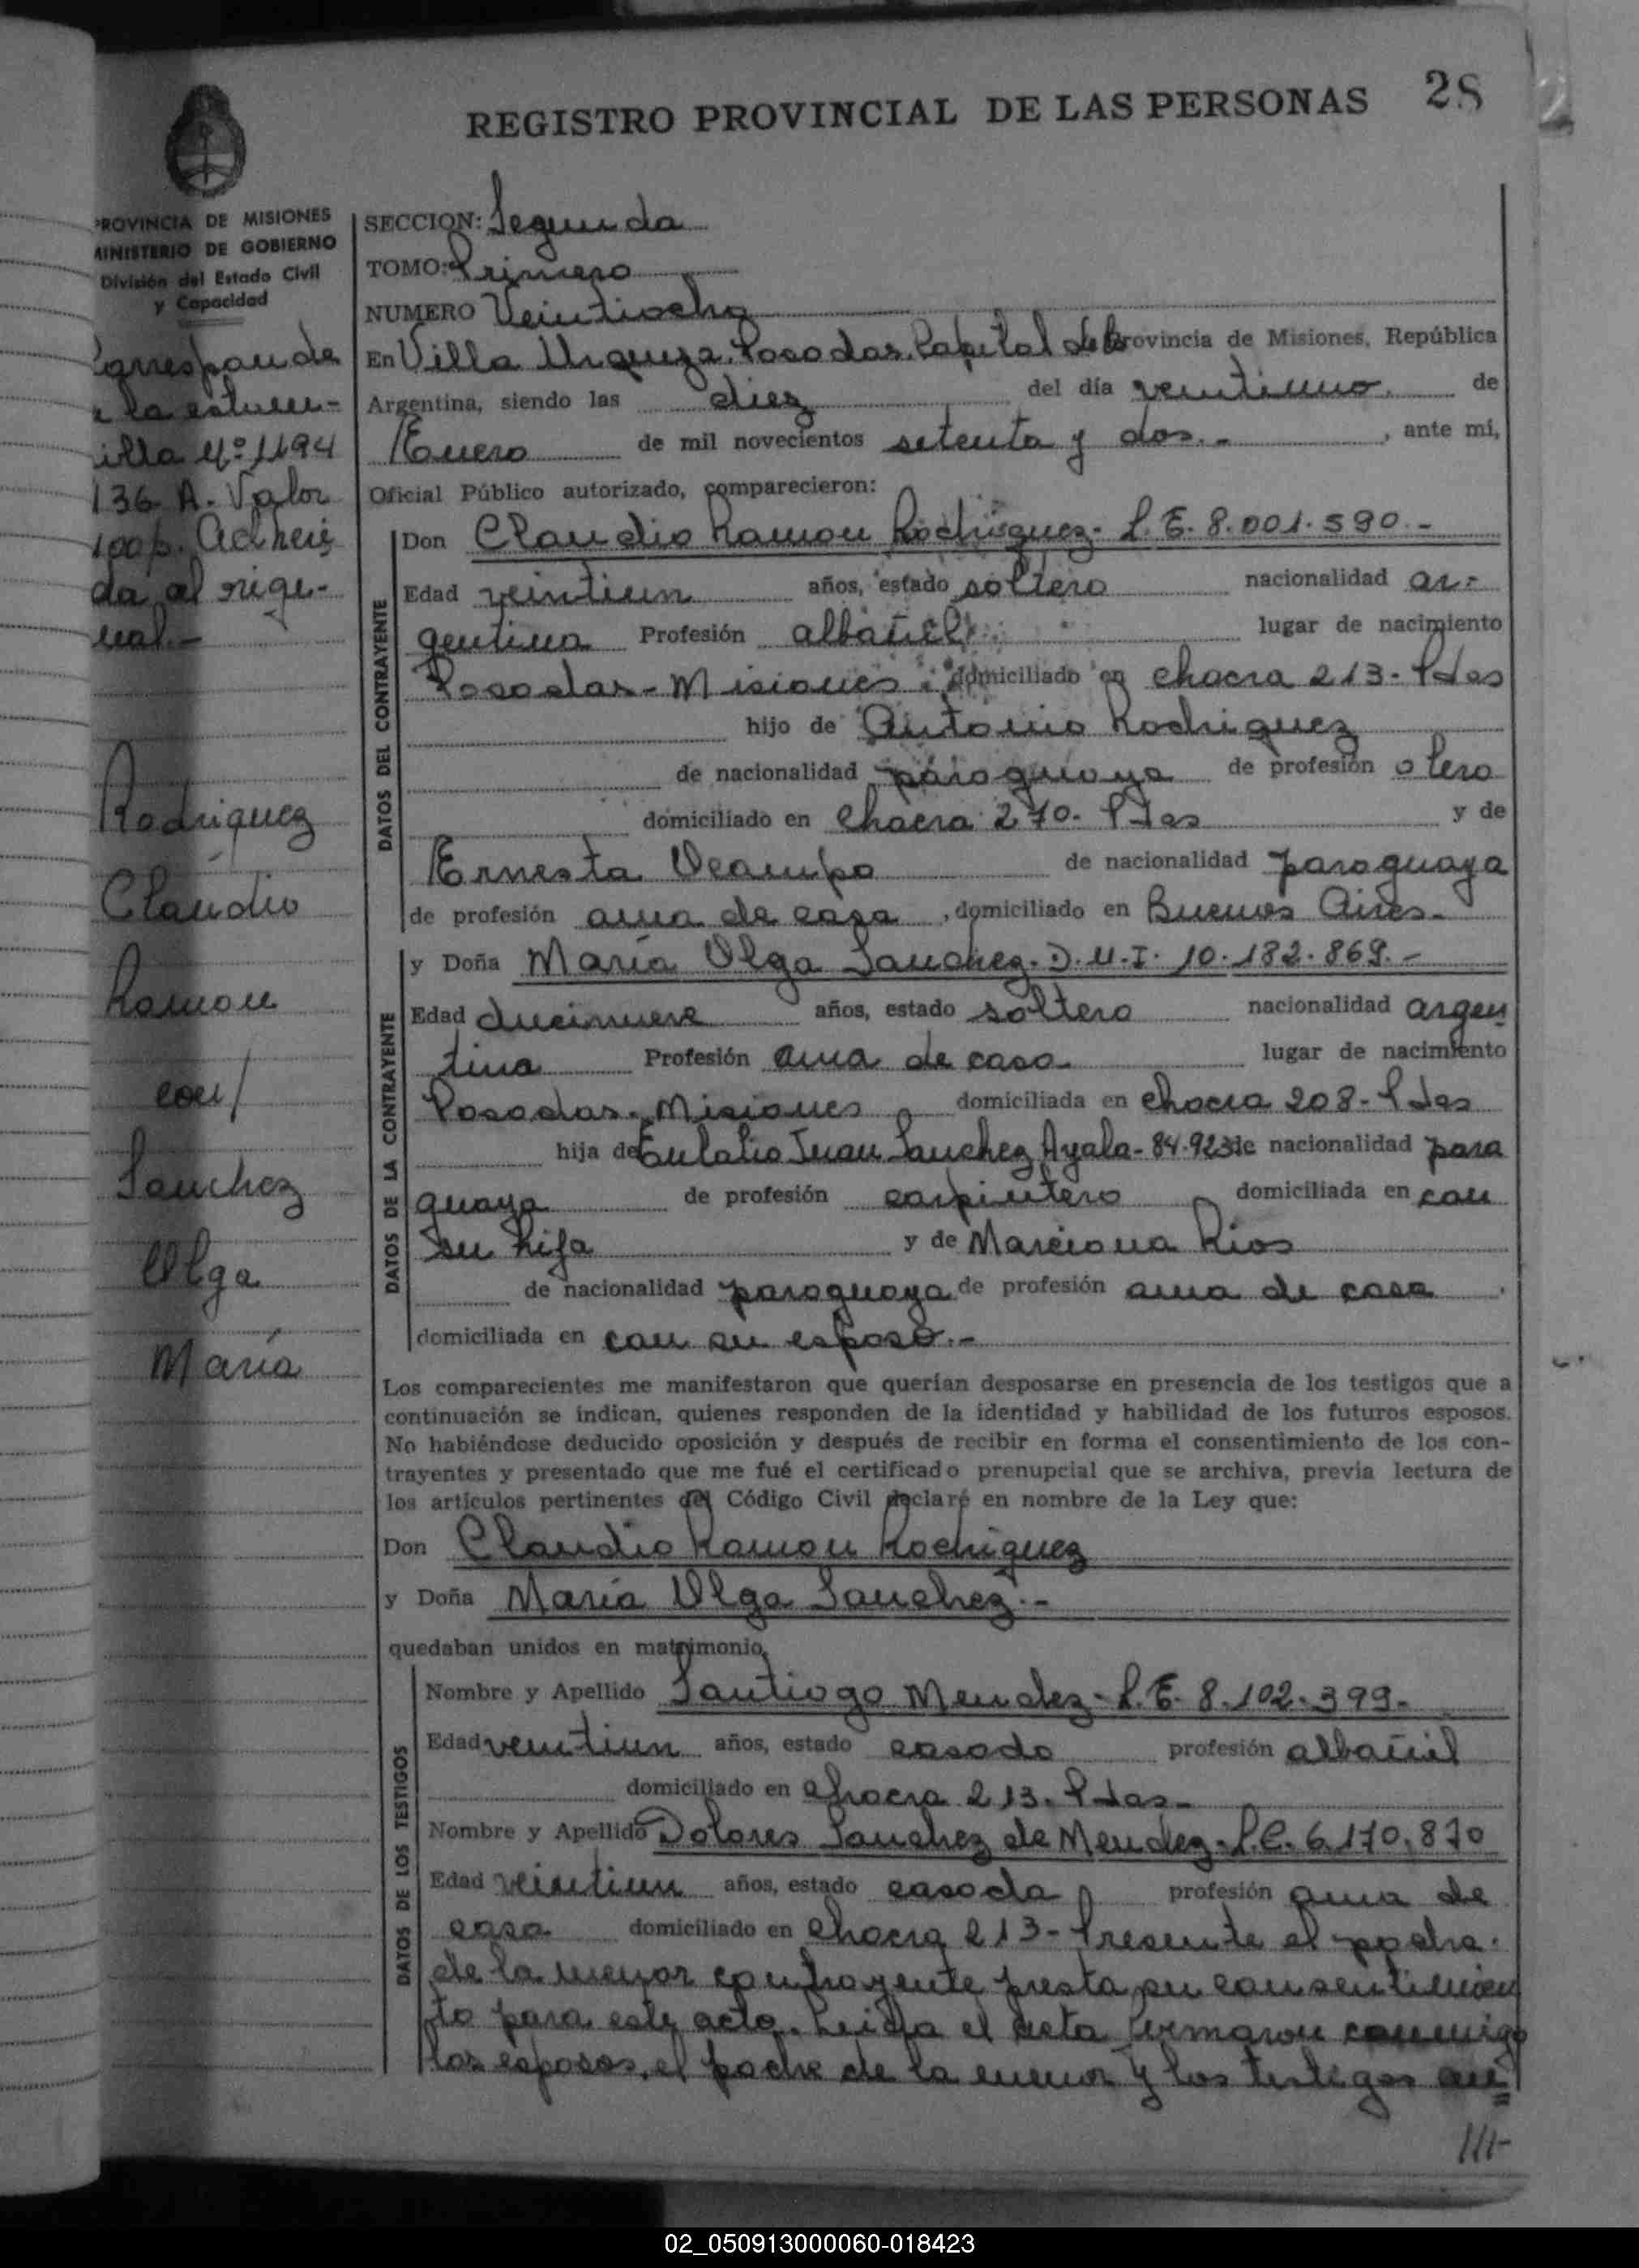 REGISTRO PROVINCIAL DE LAS PERSONAS 28
PROVINCIA DE MISIONES
MINISTERIO DE GOBIERNO
División del Estado Civil
y Capacidad
Corresponde
a la estam-
illa Nº 1194
136 A. Valor
100 p. Adheri
da al
Rodriguez
Claudio
Ramon
con/
Sanchez
Olga
María
SECCION: Segunda
TOMO: Primero
NUMERO Veintiocho
En Villa Urquiza. Posadas. Capital de la Provincia de Misiones, República
Argentina, siendo las diez del día veintiuno. de
Enero de mil novecientos setenta y dos.- , ante mí,
Oficial Público autorizado, comparecieron:
DATOS DEL CONTRAYENTE
Don Claudio Ramon Rodriguez- L.E. 8.001.590.-
Edad veintiun años, estado soltero nacionalidad ar-
gentina Profesión albañil lugar de nacimiento
Posadas - Misiones domiciliado en chacra 213- Pdas
hijo de Antonio Rodriguez
de nacionalidad paraguaya de profesión olero
domiciliado en chacra 270- Pdas y de
Ernesta Ocampo de nacionalidad paraguaya
de profesión ama de casa , domiciliado en Buenos Aires.
DATOS DE LA CONTRAYENTE
y Doña María Olga Sanchez. D.N.I. 10.182.869.-
Edad diecinueve años, estado soltero nacionalidad argen
tina Profesión ama de casa lugar de nacimiento
Posadas. Misiones domiciliada en chacra 208- Pdas
hija de Eulalio Juan Sanchez Ayala- 84.923 de nacionalidad para
guaya de profesión carpintero domiciliada en con
su hija y de Marciana Rios
de nacionalidad paraguaya de profesión ama de casa .
domiciliada en con su esposo.-
Los comparecientes me manifestaron que querían desposarse en presencia de los testigos que a
continuación se indican, quienes responden de la identidad y habilidad de los futuros esposos.
No habiéndose deducido oposición y después de recibir en forma el consentimiento de los con-
trayentes y presentado que me fué el certificado prenupcial que se archiva, previa lectura de
los artículos pertinentes del Código Civil declaré en nombre de la Ley que:
Don Claudio Ramon Rodriguez
y Doña María Olga Sanchez.-
quedaban unidos en matrimonio.
DATOS DE LOS TESTIGOS
Nombre y Apellido Santiago Mendez- L.E. 8.102.399-
Edad veintiun años, estado casado profesión albañil
domiciliado en chacra 213. Pdas-
Nombre y Apellido Dolores Sanchez de Mendez- L.C. 6.170.870
Edad veintiun años, estado casada profesión ama de
casa domiciliado en chacra 213- Presente el padre
de la menor contrayente presta su consentimien
to para este acto. Leida el acta firmaron conmigo
los esposos, el padre de la menor y los testigos
///-
02_050913000060-018423